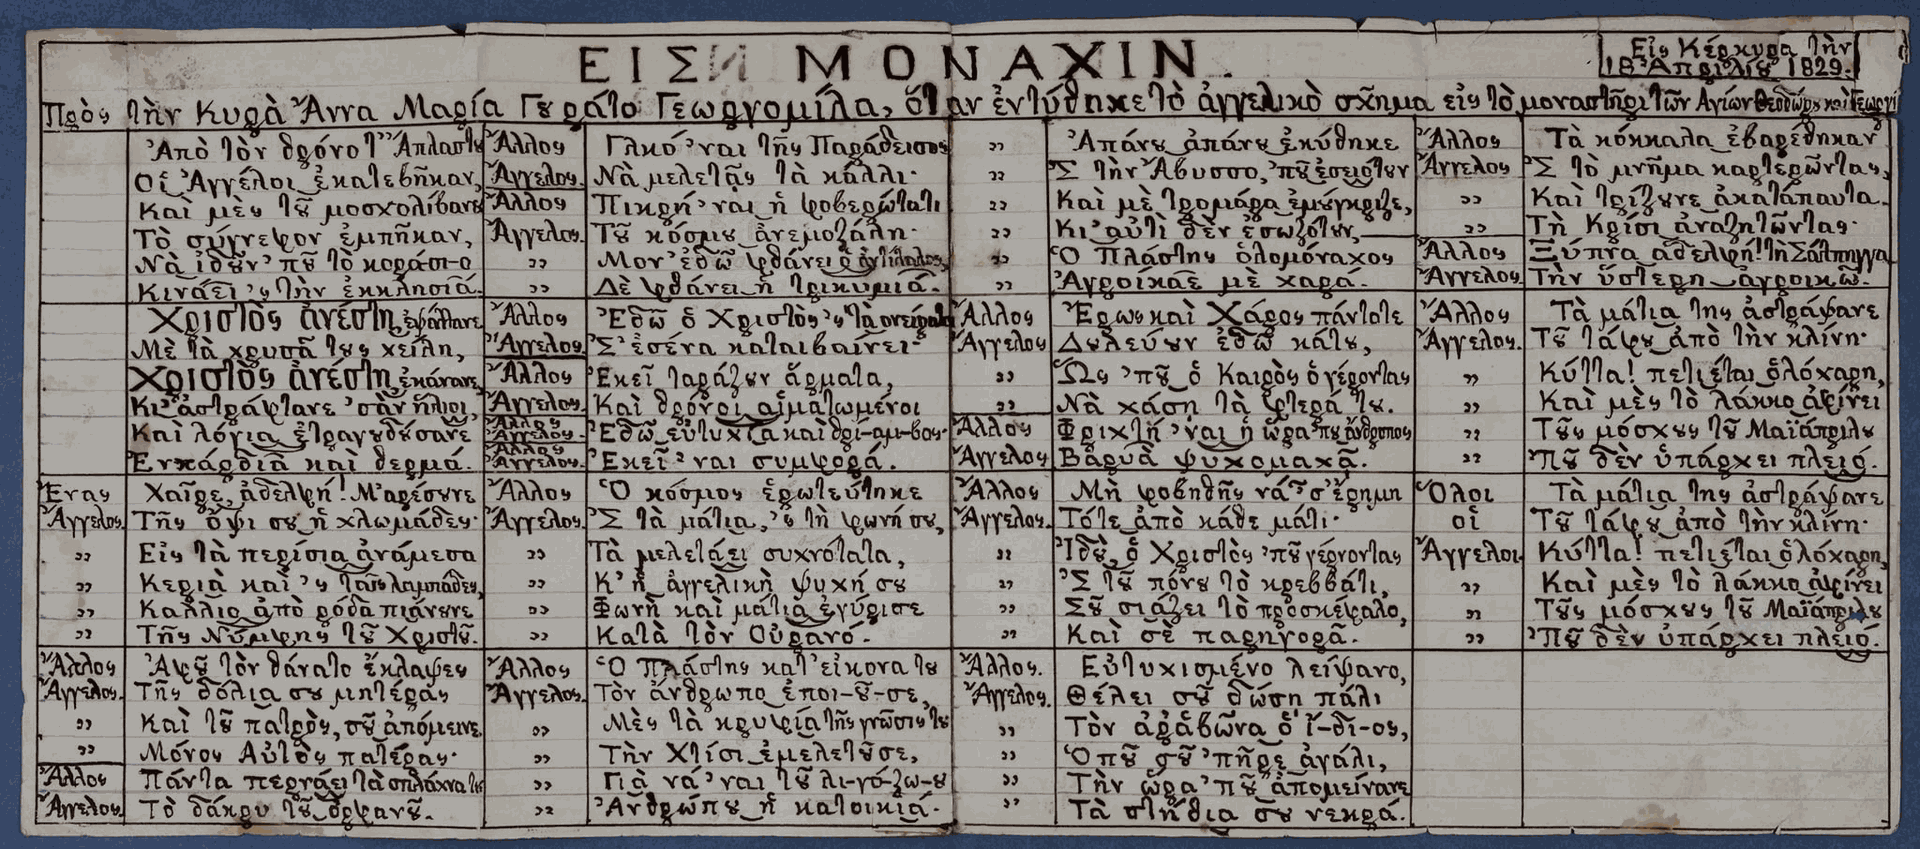 ΕΙΣ ΜΟΝΑΧΙΝ.
Εἰς Κέρκυρα τὴν
18 Ἀπριλίου 1829.
Πρὸς τὴν Κυρὰ Ἄννα Μαρία Γουράτο Γεωργομίλα, ὅταν ἐντύθηκε τὸ ἀγγελικὸ σχῆμα εἰς τὸ μοναστῆρι τῶν Ἁγίων Θεοδώρου καὶ Γεωργί
Ἀπὸ τὸν θρόνο τ' Ἄπλαστου
Οἱ Ἀγγέλοι ἐκατεβῆκαν,
Καὶ μὲς τοῦ μοσχολίβανου
Τὸ σύγνεφον ἐμπῆκαν,
Νὰ ἰδοῦν 'ποῦ τὸ κοράσι-ο
Κινάει 'ς τὴν ἐκκλησιά.
Χριστὸς ἀνέστη ἐψάλλανε
Μὲ τὰ χρυσᾶ τους χείλη,
Χριστὸς ἀνέστη ἐκάνανε,
Κι' ἀστράφτανε 'σὰν ἥλιοι,
Καὶ λόγια ἐτραγουδούσανε
Ἐγκάρδια καὶ θερμά.
Ἕνας Χαῖρε, ἀδελφή! Μ' ἀρέσουνε
Ἄγγελος. Τῆς ὄψι σου ἡ χλωμάδες·
„ Εἰς τὰ περίσια ἀνάμεσα
„ Κεριὰ καὶ 'ς ταῖς λαμπάδες,
„ Κάλλιο ἀπὸ ρόδα πιάνουνε
„ Τῆς Νύμφης τοῦ Χριστοῦ.
Ἄλλος Ἀφοῦ τὸν θάνατο ἔκλαψες
Ἄγγελος. Τῆς δόλια σου μητέρας
„ Καὶ τοῦ πατρὸς, σοῦ ἀπόμεινε
„ Μόνος Αὐτὸς πατέρας·
Ἄλλος Πάντα περνάει τὰ σπλάχνα του
Ἄγγελος. Τὸ δάκρυ τοῦ ὀρφανοῦ.
Ἄλλος Γλκό 'ναι τῆς Παράδεισος
Ἄγγελος. Νὰ μελετᾷς τὰ κάλλι·
Ἄλλος Πικρή 'ναι ἡ φοβερώτατι
Ἄγγελος. Τοῦ κόσμου ἀνεμοζάλη·
„ Μον' ἐδῶ φθάνει ὁ ἀντίλαλος,
„ Δὲ φθάνει ἡ τρικυμιά.
Ἄλλος Ἐδῶ ὁ Χριστὸς 'ς τὰ ὀνείρατα
Ἄγγελος. Σ' ἐσένα καταιβαίνει·
Ἄλλος Ἐκεῖ ταράζουν ἅρματα,
Ἄγγελος. Καὶ θρόνοι αἱματωμένοι
Ἄλλος Ἄγγελος. Ἐδῶ εὐτυχία καὶ θρί-αμ-βος·
Ἄλλος Ἄγγελος. Ἐκεῖ 'ναι συμφορά.
Ἄλλος Ὁ κόσμος ἐρωτεύτηκε
Ἄγγελος. Σ τὰ μάτια, 'ς τὴ φωνή σου,
„ Τὰ μελετάει συχνότατα,
„ Κ' ἡ ἀγγελικὴ ψυχή σου
„ Φωνὴ καὶ μάτια ἐγύρισε
„ Κατὰ τὸν Οὐρανό.
Ἄλλος Ὁ Πλάστης κατ' εἰκονα του
Ἄγγελος. Τὸν ἄνθρωπο ἐποι-οῦ-σε,
„ Μὲς τὰ κρυφία τῆς γνῶσις του
„ Τὴν Χτίσι ἐμελετοῦσε,
„ Γιὰ νά 'ναι τοῦ λι-γό-ζω-ου
„ Ἀνθρώπου ἡ κατοικιά.
„ Ἀπάνου ἀπάνου ἐχύθηκε
„ Σ τὴν Ἄβυσσο, 'ποῦ ἐσειότουν
„ Καὶ μὲ τρομάρα ἐμούγκριζε,
„ Κι' αὐτὶ δὲν ἐσωζότουν,
„ Ὁ Πλάστης ὁλομόναχος
„ Ἀγροίκαε μὲ χαρά.
Ἄλλος Ἔρως καὶ Χάρος πάντοτε
Ἄγγελος. Δουλεύουν ἐδῶ κάτου,
„ Ὥς 'ποῦ ὁ Καιρὸς ὁ γέροντας
„ Νὰ χάση τὰ φτερά του.
Ἄλλος Φριχτή 'ναι ἡ ὥρα 'που ἄνθρωπος
Ἄγγελος Βαρυὰ ψυχομαχᾶ.
Ἄλλος Μὴ φοβηθῆς νά 'σ' ἔρημη
Ἄγγελος. Τότε ἀπὸ κάθε μάτι·
„ Ἰδὲ, ὁ Χριστὸς 'ποῦ γέρνοντας
„ Σ τοῦ πόνου τὸ κρεββάτι,
„ Σοῦ σιάζει τὸ προσκέφαλο,
„ Καὶ σὲ παρηγορᾶ.
Ἄλλος. Εὐτυχισμένο λείψανο,
Ἄγγελος. Θέλει σοῦ δώση πάλι
„ Τὸν ἀρραβῶνα ὁ ἴ-δι-ος,
„ Ὁποῦ σοῦ 'πῆρε ἀγάλι,
„ Τὴν ὥρα 'ποῦ ἀπομείνανε
„ Τὰ στήθια σου νεκρά.
Ἄλλος Τὰ κόκκαλα ἐβαρέθηκαν
Ἄγγελος Σ τὸ μνῆμα καρτερῶντας,
„ Καὶ τρίζουνε ἀκατάπαυτα
„ Τὴ Κρίσι ἀναζητῶντας·
Ἄλλος Ξύπνα ἀδελφή! τὴ Σάλπηγγα
Ἄγγελος. Τὴν ὕστερη ἀγροικῶ.
Ἄλλος Τὰ μάτια της ἀστράψανε
Ἄγγελος. Τοῦ τάφου ἀπὸ τὴν κλίνη·
„ Κύττα! πετιέται ὁλόχαρη,
„ Καὶ μὲς τὸ λάκκο ἀφίνει
„ Τοὺς μόσχους τοῦ Μαϊάπριλου
„ Ποῦ δὲν ὑπάρχει πλειό.
Ὅλοι Τὰ μάτια της ἀστράψανε
οἱ Τοῦ τάφου ἀπὸ τὴν κλίνη·
Ἄγγελοι. Κύττα! πετιέται ὁλόχαρη,
„ Καὶ μὲς τὸ λάκκο ἀφίνει
„ Τοὺς μόσχους τοῦ Μαϊάπριλου
„ Ποῦ δὲν ὑπάρχει πλειό.